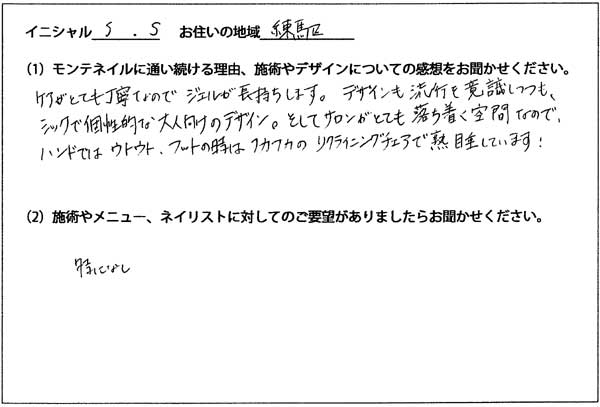 イニシャル S . S お住いの地域 練馬区
(1) モンテネイルに通い続ける理由、施術やデザインについての感想をお聞かせください。
ケアがとても丁寧なので ジェルが長持ちします。 デザインも 流行を意識しつつも、
シックで個性的な大人向けのデザイン。そしてサロンがとても 落ち着く空間なので、
ハンドでは ウトウト、フットの時は フカフカの リクライニングチェアで熟睡しています!
(2) 施術やメニュー、ネイリストに対してのご要望がありましたらお聞かせください。
特になし